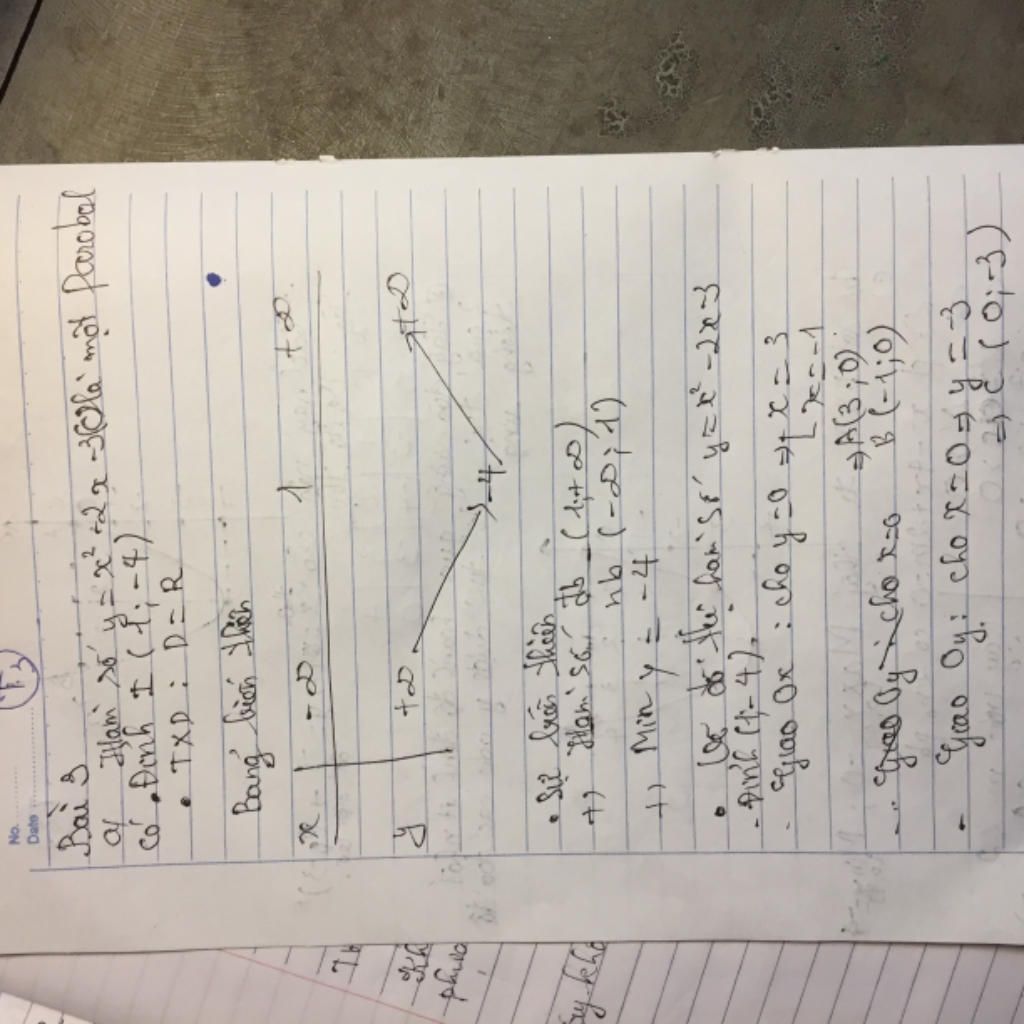 No.
Date
Bài 3
a) Hàm số y = x² + 2x - 3 (1) là một Parabol
có • Đỉnh I (1; -4)
• TXD : D = R
Bảng biến thiên
x -∞ 1 +∞
y +∞ -4 +∞
• Sự biến thiên
+) Hàm số đb (1; +∞)
nb (-∞; 1)
+) Min y = -4
• Vẽ đồ thị hàm số y = x² - 2x - 3
- Đỉnh (1; -4)
- Giao Ox : cho y = 0 => [ x = 3
[ x = -1
=> A(3; 0)
B (-1; 0)
- Giao Oy : cho x = 0
- Giao Oy : cho x = 0 => y = -3
=> C (0; -3)
phươ